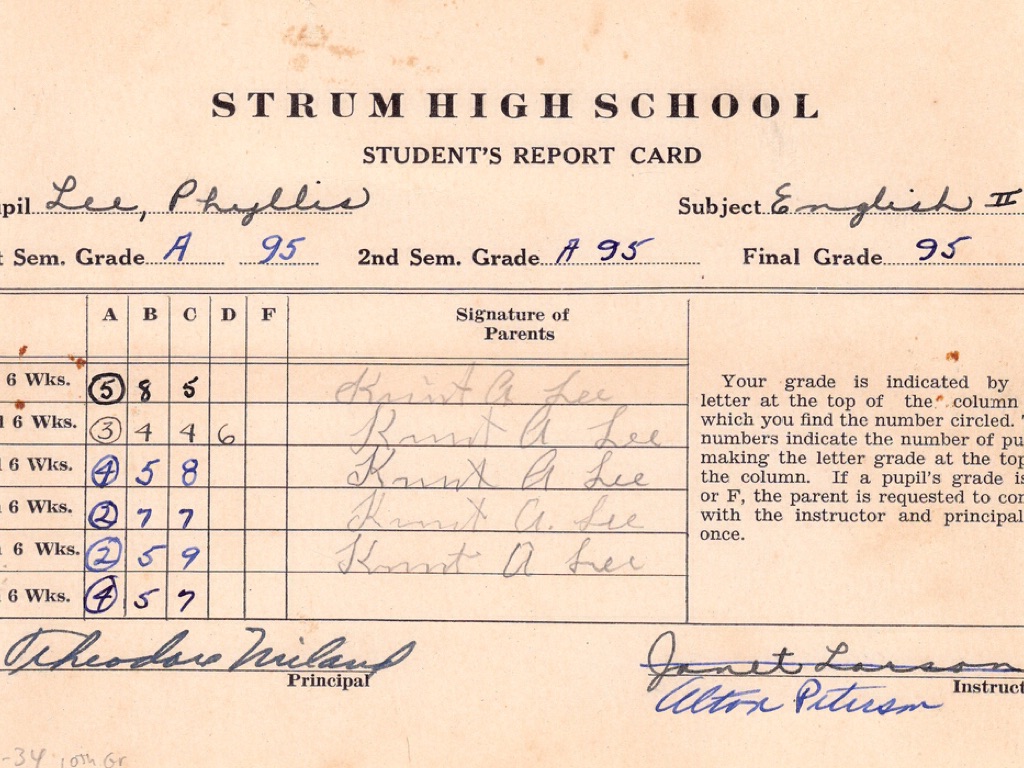 STRUM HIGH SCHOOL
STUDENT'S REPORT CARD
pil Lee, Phyllis Subject English II
t Sem. Grade A 95 2nd Sem. Grade A 95 Final Grade 95
A B C D F Signature of Parents
6 Wks. 5 8 5 Knut A Lee
6 Wks. 3 4 4 6 Knut A Lee
6 Wks. 4 5 8 Knut A Lee
6 Wks. 2 7 7 Knut A. Lee
6 Wks. 2 5 9 Knut A Lee
6 Wks. 4 5 7
Your grade is indicated by
letter at the top of the column
which you find the number circled.
numbers indicate the number of pu
making the letter grade at the top
the column. If a pupil's grade is
or F, the parent is requested to con
with the instructor and principal
once.
Theodore Janet Larson
Principal Instruct
Alton Peterson
-34 10th Gr